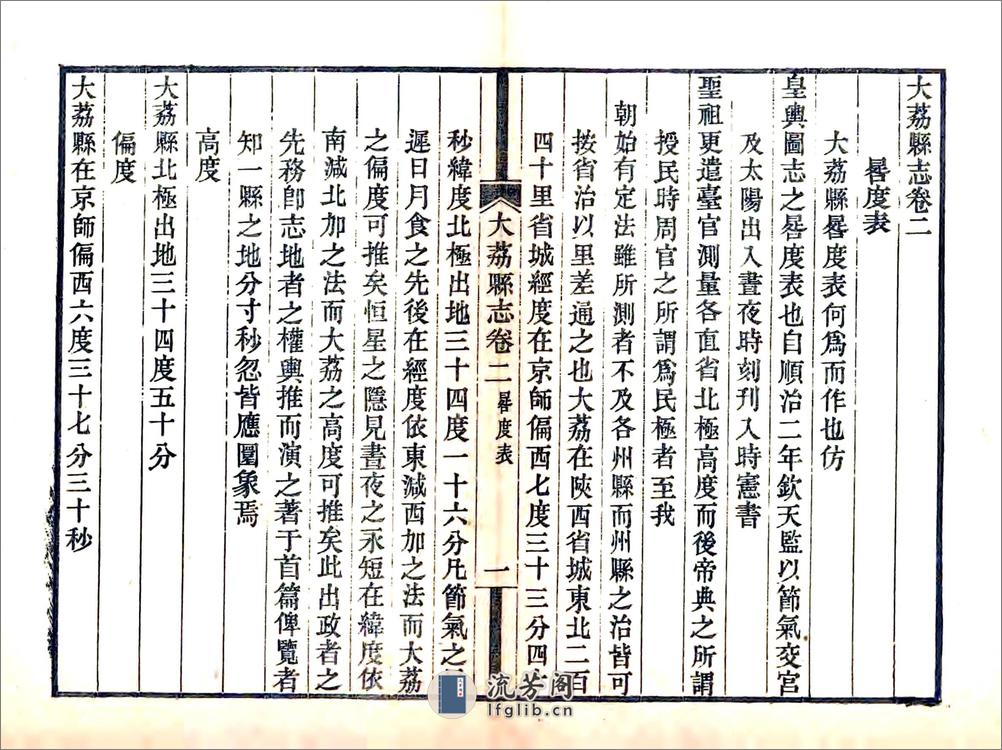 大荔縣志卷二
晷度表
大荔縣晷度表何爲而作也仿
皇輿圖志之晷度表也自順治二年欽天監以節氣交宮
及太陽出入晝夜時刻刊入時憲書
聖祖更遣臺官測量各直省北極高度而後帝典之所謂
授民時周官之所謂爲民極者至我
朝始有定法雖所測者不及各州縣而州縣之治皆可
按省治以里差通之也大荔在陝西省城東北二百
四十里省城經度在京師偏西七度三十三分四
大荔縣志卷二 晷度表 一
秒緯度北極出地三十四度一十六分凡節氣之
遲日月食之先後在經度依東減西加之法而大荔
之偏度可推矣恒星之隱見晝夜之永短在緯度依
南減北加之法而大荔之高度可推矣此出政者之
先務卽志地者之權輿推而演之著于首篇俾覽者
知一縣之地分寸秒忽皆應圜象焉
高度
大荔縣北極出地三十四度五十分
偏度
大荔縣在京師偏西六度三十七分三十秒
流芳阁
lfglib.cn